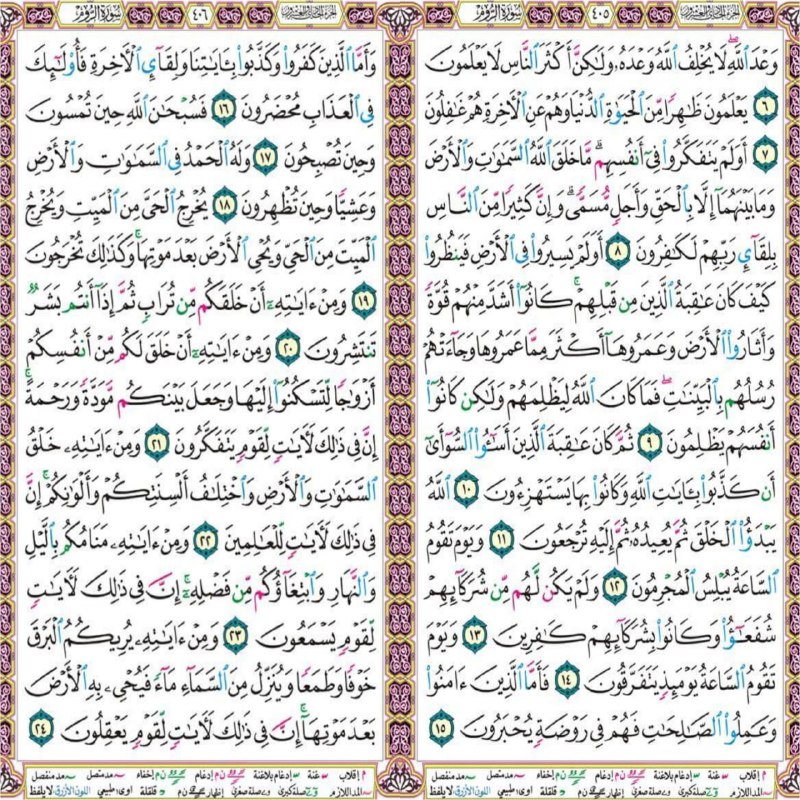 سُورَةُ الرُّومِ
٤٠٥
الجزء الحادي والعشرون
وَعْدَ ٱللَّهِ ۖ لَا يُخْلِفُ ٱللَّهُ وَعْدَهُۥ وَلَٰكِنَّ أَكْثَرَ ٱلنَّاسِ لَا يَعْلَمُونَ
٦ يَعْلَمُونَ ظَٰهِرًا مِّنَ ٱلْحَيَوٰةِ ٱلدُّنْيَا وَهُمْ عَنِ ٱلْءَاخِرَةِ هُمْ غَٰفِلُونَ
٧ أَوَلَمْ يَتَفَكَّرُوا۟ فِىٓ أَنفُسِهِم ۗ مَّا خَلَقَ ٱللَّهُ ٱلسَّمَٰوَٰتِ وَٱلْأَرْضَ
وَمَا بَيْنَهُمَآ إِلَّا بِٱلْحَقِّ وَأَجَلٍ مُّسَمًّى ۗ وَإِنَّ كَثِيرًا مِّنَ ٱلنَّاسِ
بِلِقَآئِ رَبِّهِمْ لَكَٰفِرُونَ ٨ أَوَلَمْ يَسِيرُوا۟ فِى ٱلْأَرْضِ فَيَنظُرُوا۟
كَيْفَ كَانَ عَٰقِبَةُ ٱلَّذِينَ مِن قَبْلِهِمْ ۚ كَانُوٓا۟ أَشَدَّ مِنْهُمْ قُوَّةً
وَأَثَارُوا۟ ٱلْأَرْضَ وَعَمَرُوهَآ أَكْثَرَ مِمَّا عَمَرُوهَا وَجَآءَتْهُمْ
رُسُلُهُم بِٱلْبَيِّنَٰتِ ۖ فَمَا كَانَ ٱللَّهُ لِيَظْلِمَهُمْ وَلَٰكِن كَانُوٓا۟
أَنفُسَهُمْ يَظْلِمُونَ ٩ ثُمَّ كَانَ عَٰقِبَةَ ٱلَّذِينَ أَسَٰٓـُٔوا۟ ٱلسُّوٓأَىٰٓ
أَن كَذَّبُوا۟ بِـَٔايَٰتِ ٱللَّهِ وَكَانُوا۟ بِهَا يَسْتَهْزِءُونَ ١٠ ٱللَّهُ
يَبْدَؤُا۟ ٱلْخَلْقَ ثُمَّ يُعِيدُهُۥ ثُمَّ إِلَيْهِ تُرْجَعُونَ ١١ وَيَوْمَ تَقُومُ
ٱلسَّاعَةُ يُبْلِسُ ٱلْمُجْرِمُونَ ١٢ وَلَمْ يَكُن لَّهُم مِّن شُرَكَآئِهِمْ
شُفَعَٰٓؤُا۟ وَكَانُوا۟ بِشُرَكَآئِهِمْ كَٰفِرِينَ ١٣ وَيَوْمَ
تَقُومُ ٱلسَّاعَةُ يَوْمَئِذٍ يَتَفَرَّقُونَ ١٤ فَأَمَّا ٱلَّذِينَ ءَامَنُوا۟
وَعَمِلُوا۟ ٱلصَّٰلِحَٰتِ فَهُمْ فِى رَوْضَةٍ يُحْبَرُونَ ١٥
سُورَةُ الرُّومِ
٤٠٦
الجزء الحادي والعشرون
وَأَمَّا ٱلَّذِينَ كَفَرُوا۟ وَكَذَّبُوا۟ بِـَٔايَٰتِنَا وَلِقَآئِ ٱلْءَاخِرَةِ فَأُو۟لَٰٓئِكَ
فِى ٱلْعَذَابِ مُحْضَرُونَ ١٦ فَسُبْحَٰنَ ٱللَّهِ حِينَ تُمْسُونَ
وَحِينَ تُصْبِحُونَ ١٧ وَلَهُ ٱلْحَمْدُ فِى ٱلسَّمَٰوَٰتِ وَٱلْأَرْضِ
وَعَشِيًّا وَحِينَ تُظْهِرُونَ ١٨ يُخْرِجُ ٱلْحَىَّ مِنَ ٱلْمَيِّتِ وَيُخْرِجُ
ٱلْمَيِّتَ مِنَ ٱلْحَىِّ وَيُحْىِ ٱلْأَرْضَ بَعْدَ مَوْتِهَا ۚ وَكَذَٰلِكَ تُخْرَجُونَ
١٩ وَمِنْ ءَايَٰتِهِۦٓ أَنْ خَلَقَكُم مِّن تُرَابٍ ثُمَّ إِذَآ أَنتُم بَشَرٌ
تَنتَشِرُونَ ٢٠ وَمِنْ ءَايَٰتِهِۦٓ أَنْ خَلَقَ لَكُم مِّنْ أَنفُسِكُمْ
أَزْوَٰجًا لِّتَسْكُنُوٓا۟ إِلَيْهَا وَجَعَلَ بَيْنَكُم مَّوَدَّةً وَرَحْمَةً ۚ
إِنَّ فِى ذَٰلِكَ لَءَايَٰتٍ لِّقَوْمٍ يَتَفَكَّرُونَ ٢١ وَمِنْ ءَايَٰتِهِۦ خَلْقُ
ٱلسَّمَٰوَٰتِ وَٱلْأَرْضِ وَٱخْتِلَٰفُ أَلْسِنَتِكُمْ وَأَلْوَٰنِكُمْ ۚ إِنَّ
فِى ذَٰلِكَ لَءَايَٰتٍ لِّلْعَٰلِمِينَ ٢٢ وَمِنْ ءَايَٰتِهِۦ مَنَامُكُم بِٱلَّيْلِ
وَٱلنَّهَارِ وَٱبْتِغَآؤُكُم مِّن فَضْلِهِۦٓ ۚ إِنَّ فِى ذَٰلِكَ لَءَايَٰتٍ
لِّقَوْمٍ يَسْمَعُونَ ٢٣ وَمِنْ ءَايَٰتِهِۦ يُرِيكُمُ ٱلْبَرْقَ
خَوْفًا وَطَمَعًا وَيُنَزِّلُ مِنَ ٱلسَّمَآءِ مَآءً فَيُحْىِۦ بِهِ ٱلْأَرْضَ
بَعْدَ مَوْتِهَآ ۚ إِنَّ فِى ذَٰلِكَ لَءَايَٰتٍ لِّقَوْمٍ يَعْقِلُونَ ٢٤
م إقلاب س غنة إدغام بلاغنة ن م إدغام ن م إخفاء مد متصل مد منفصل
مد اللازم وے صلة كبرى وے صلة صغرى إظهار ن م قلقلة اوى: طبيعي اللون الأزرق: لا يلفظ